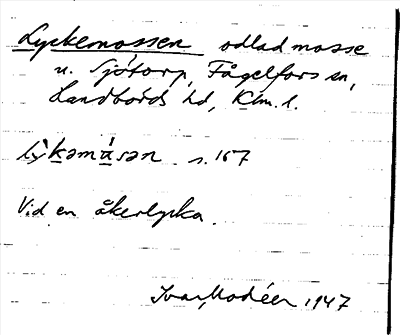 Lyckemossen odlad mosse
u. Sjötorp, Fågelfors sn,
Handbörds hd, Klm. l.
lỳkəmåsən s. 167
Vid en åkerlycka.
Ivar Modéer 1947